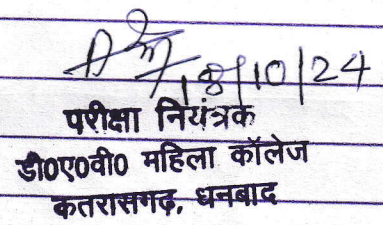 18/10/24
परीक्षा नियंत्रक
डी0ए0वी0 महिला कॉलेज
कतरासगढ़, धनबाद